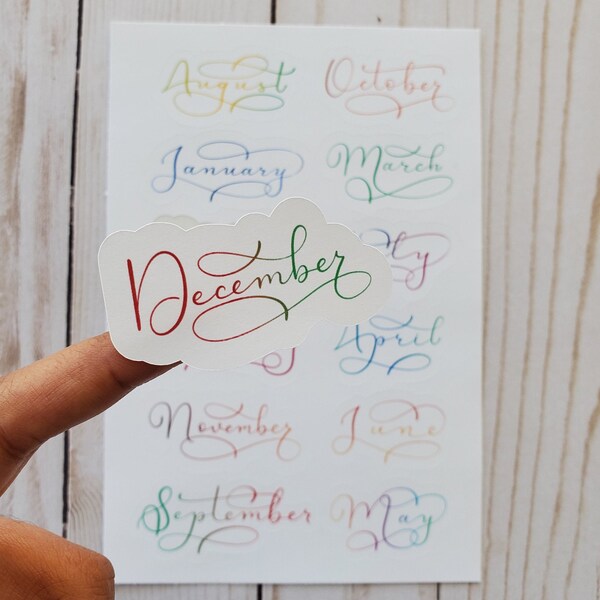 August October
January March
December
April
November June
September May